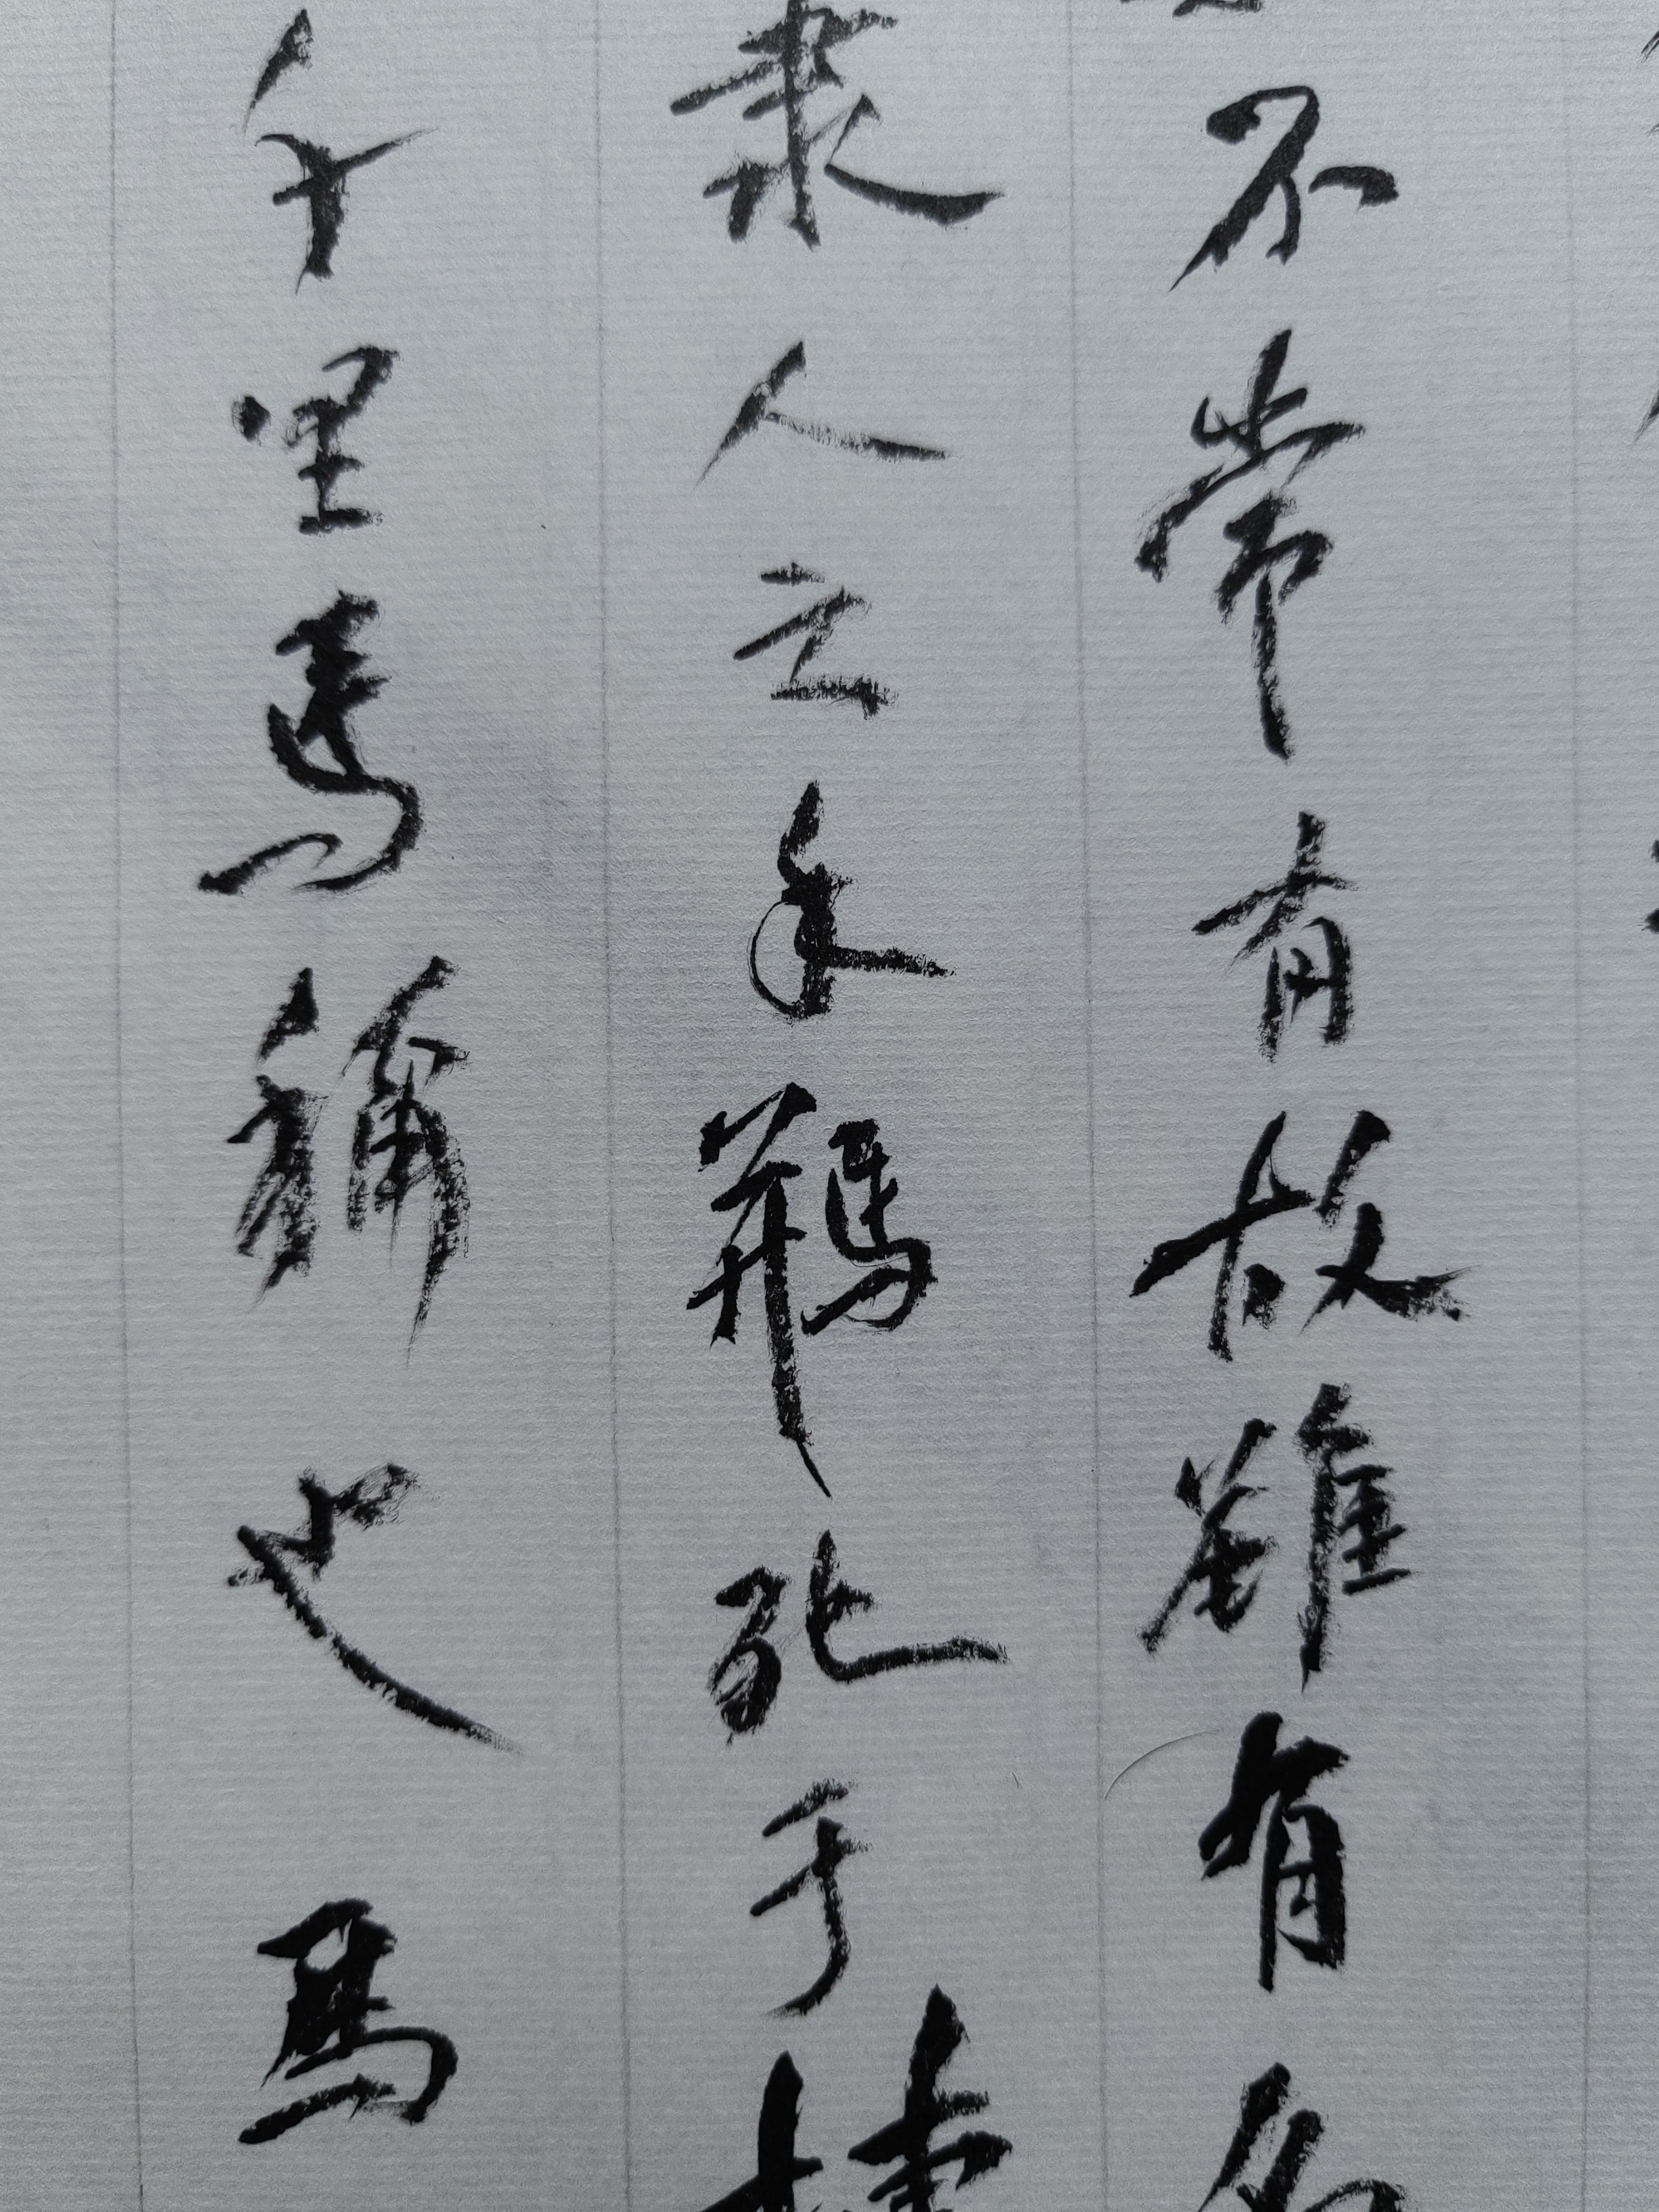 不常有故雖有名
隸人之手駢死于槽
千里馬稱也馬